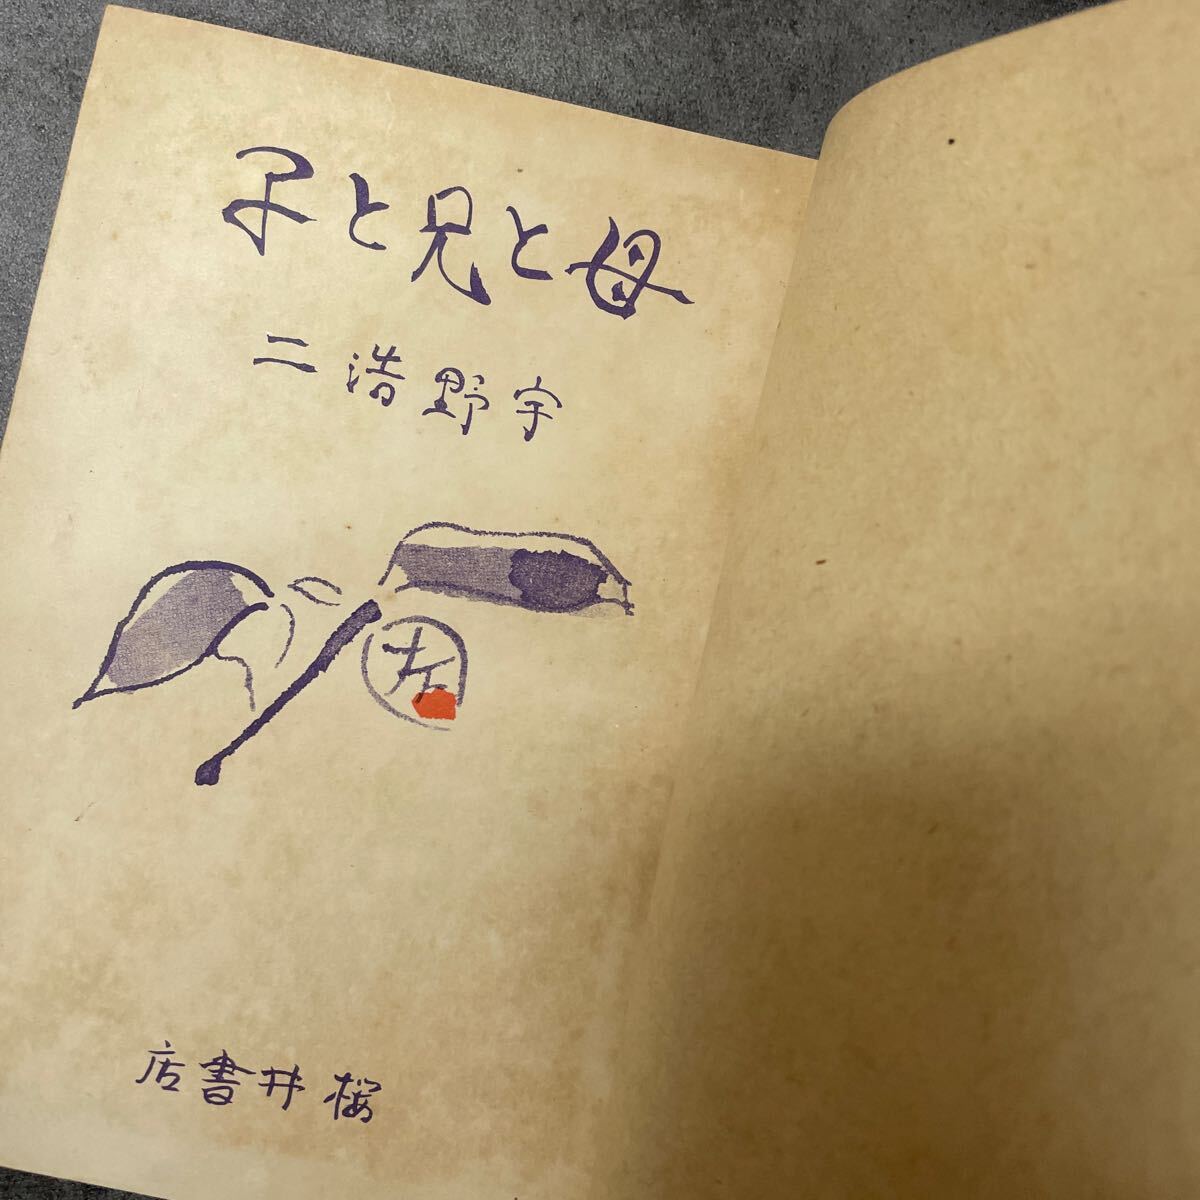 母と兄と子
宇野浩二
左
桜井書店